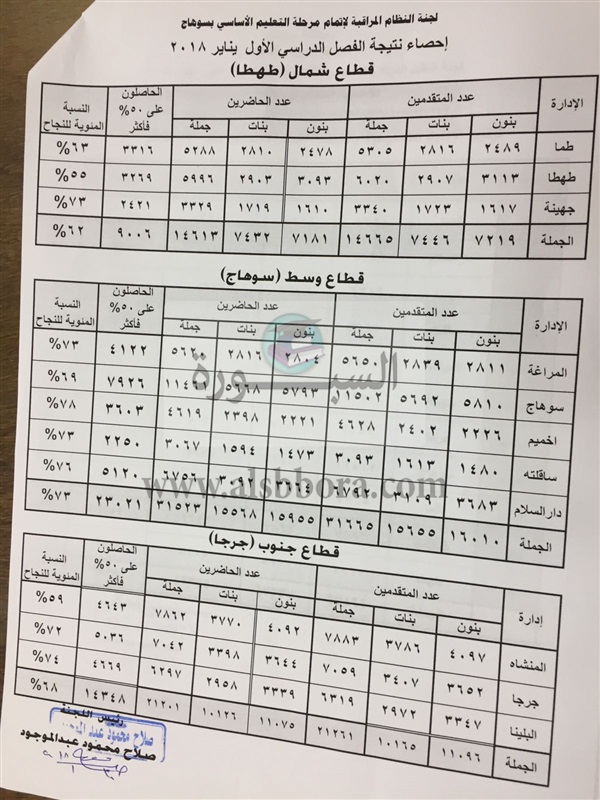 لجنة النظام المراقبة لإتمام مرحلة التعليم الأساسي بسوهاج
إحصاء نتيجة الفصل الدراسي الأول يناير ٢٠١٨
قطاع شمال (طهطا)
الإدارة عدد المتقدمين عدد الحاضرين الحاصلون على ٥٠% فأكثر النسبة المئوية للنجاح
بنون بنات جملة بنون بنات جملة
طما ٢٤٨٩ ٢٨١٦ ٥٣٠٥ ٢٤٧٨ ٢٨١٠ ٥٢٨٨ ٣٣١٦ ٦٣%
طهطا ٣١١٣ ٢٩٠٧ ٦٠٢٠ ٣٠٩٣ ٢٩٠٣ ٥٩٩٦ ٣٢٦٩ ٥٥%
جهينة ١٦١٧ ١٧٢٣ ٣٣٤٠ ١٦١٠ ١٧١٩ ٣٣٢٩ ٢٤٢١ ٧٣%
الجملة ٧٢١٩ ٧٤٤٦ ١٤٦٦٥ ٧١٨١ ٧٤٣٢ ١٤٦١٣ ٩٠٠٦ ٦٢%
قطاع وسط (سوهاج)
الإدارة عدد المتقدمين عدد الحاضرين الحاصلون على ٥٠% فأكثر النسبة المئوية للنجاح
بنون بنات جملة بنون بنات جملة
المراغة ٢٨١١ ٢٨٣٩ ٥٦٥٠ ٢٨٠٤ ٢٨١٦ ٥٦٢٠ ٤١٢٢ ٧٣%
سوهاج ٥٨١٠ ٥٦٩٢ ١١٥٠٢ ٥٧٩٣ ٥٦٦٨ ١١٤٦١ ٧٩٢٦ ٦٩%
اخميم ٢٢٢٦ ٢٤٠٢ ٤٦٢٨ ٢٢٢١ ٢٣٩٨ ٤٦١٩ ٣٦٠٣ ٧٨%
ساقلته ١٤٨٠ ١٦١٣ ٣٠٩٣ ١٤٧٣ ١٥٩٤ ٣٠٦٧ ٢٢٥٠ ٧٣%
دار السلام ٣٦٨٣ ٣١٠٩ ٦٧٩٢ ٣٦٦٤ ٣٠٩٢ ٦٧٥٦ ٥١٢٠ ٧٦%
الجملة ١٦٠١٠ ١٥٦٥٥ ٣١٦٦٥ ١٥٩٥٥ ١٥٥٦٨ ٣١٥٢٣ ٢٣٠٢١ ٧٣%
السبورة
www.alsbbora.com
قطاع جنوب (جرجا)
إدارة عدد المتقدمين عدد الحاضرين الحاصلون على ٥٠% فأكثر النسبة المئوية للنجاح
بنون بنات جملة بنون بنات جملة
المنشاه ٤٠٩٧ ٣٧٨٦ ٧٨٨٣ ٤٠٩٢ ٣٧٧٠ ٧٨٦٢ ٤٦٤٣ ٥٩%
جرجا ٣٦٥٢ ٣٤٠٧ ٧٠٥٩ ٣٦٤٤ ٣٣٩٨ ٧٠٤٢ ٥٠٣٦ ٧٢%
البلينا ٣٣٤٧ ٢٩٧٢ ٦٣١٩ ٣٣٣٩ ٢٩٥٨ ٦٢٩٧ ٤٦٦٩ ٧٤%
الجملة ١١٠٩٦ ١٠١٦٥ ٢١٢٦١ ١١٠٧٥ ١٠١٢٦ ٢١٢٠١ ١٤٣٤٨ ٦٨%
رئيس اللجنة
صلاح محمود عبد الموجود
صلاح محمود عبدالموجود